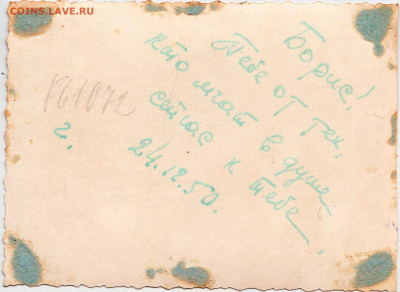 COINS.LAVE.RU
Борис!
Тебе от тех,
кто мчат в душе
сейчас к тебе.
24.12.50.
2.